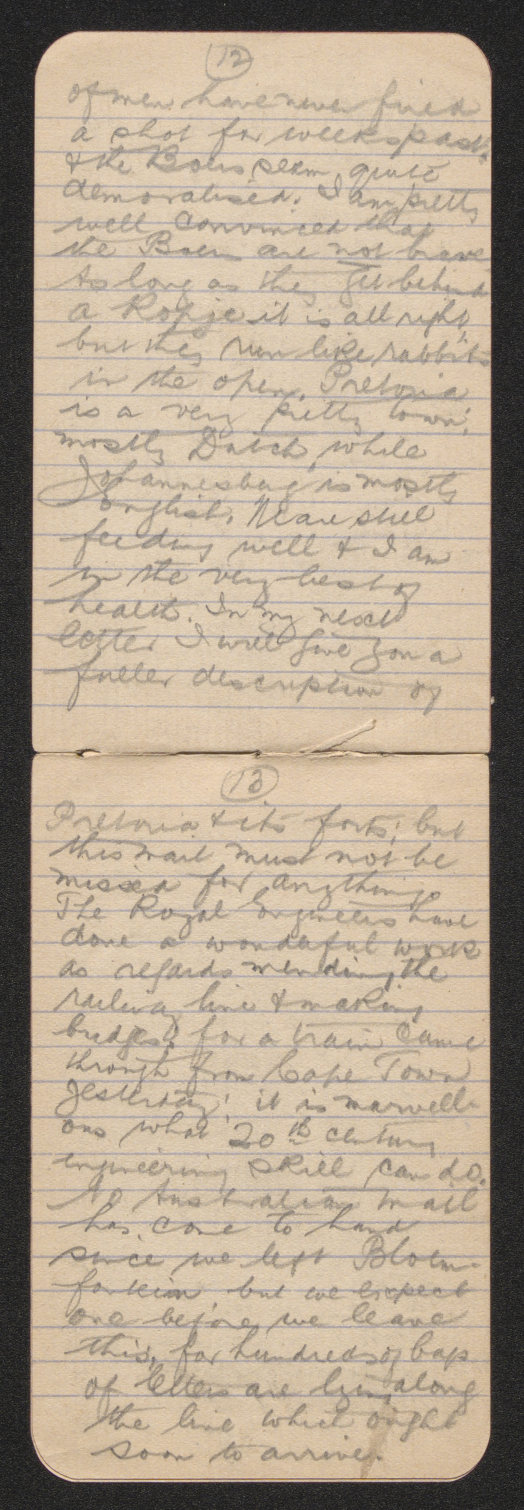 12
of men have never fired
a shot for weeks past.
& the Boers seem quite
demoralised. I am pretty
well convinced that
the Boers are not brave
As long as they get behind
a Kopje it is all right,
but they run like rabbits
in the open. Pretoria
is a very pretty town,
mostly Dutch, while
Johannesburg is mostly
English. We are still
feeding well & I am
in the very best of
health. In my next
letter I will give you a
fuller description of
13
Pretoria & its forts; but
this mail must not be
missed for anything
The Royal Engineers have
done a wonderful work
as regards mending the
railway line & making
bridges, for a train came
through from Cape Town
yesterday; it is marvell-
ous what 20th century
engineering skill can do.
No Australian mail
has come to hand
since we left Bloem-
fontein but we expect
one before we leave
this, for hundreds of bags
of letters are lying along
the line which ought
soon to arrive.